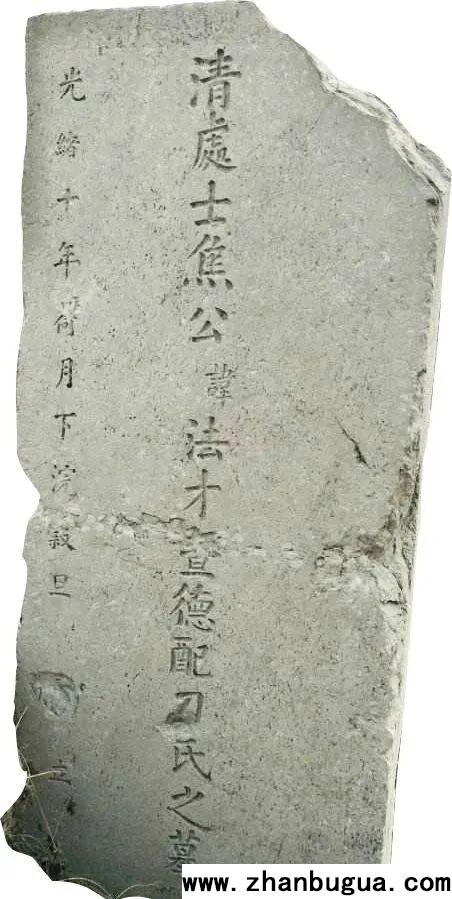 清處士焦公諱法才暨德配刁氏之墓
光緒十年荷月下浣穀旦 立
www.zhanbugua.com